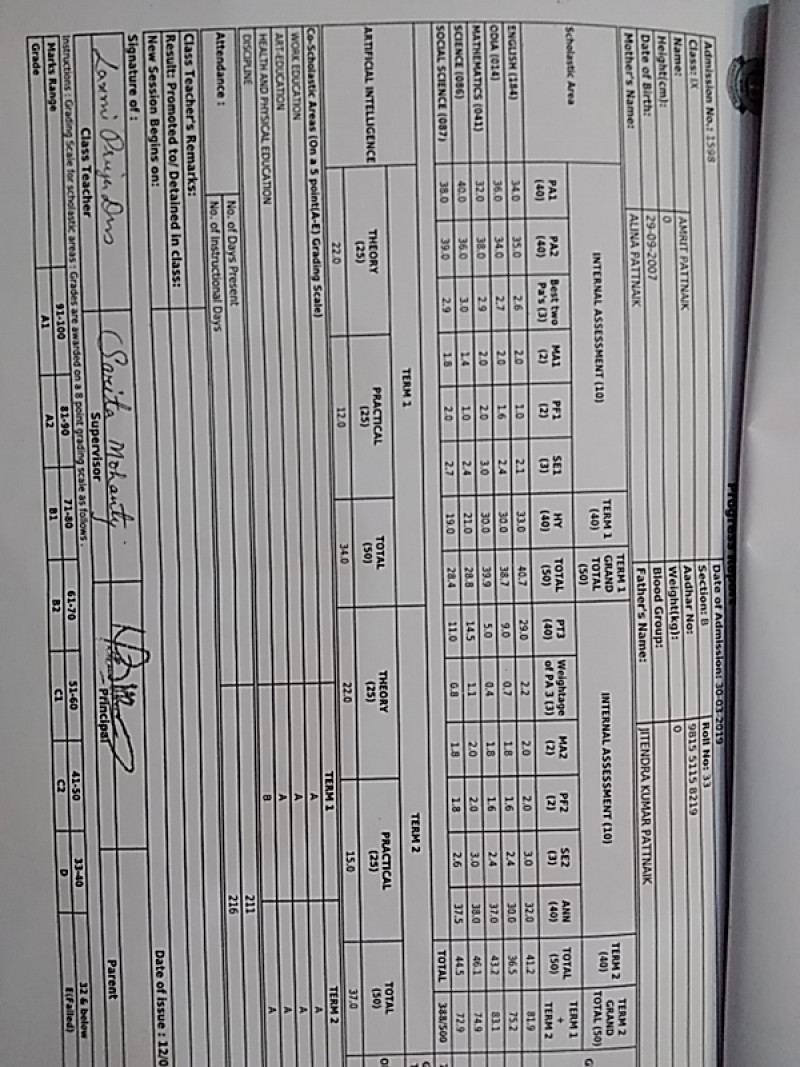 Progress Report
Admission No.: 1598 Date of Admission: 30-03-2019
Class: IX Section: B Roll No: 33
Name: AMRIT PATTNAIK Aadhar No: 9815 5115 8219
Height(cm): 0 Weight(kg): 0
Date of Birth: 29-09-2007 Blood Group:
Mother's Name: ALINA PATTNAIK Father's Name: JITENDRA KUMAR PATTNAIK
Scholastic Area INTERNAL ASSESSMENT (10) TERM 1 (40) TERM 1 GRAND TOTAL (50) INTERNAL ASSESSMENT (10) TERM 2 (40) TERM 2 GRAND TOTAL (50)
PA1 (40) PA2 (40) Best two Pa's (3) MA1 (2) PF1 (2) SE1 (3) HY (40) TOTAL (50) PT3 (40) Weightage of PA 3 (3) MA2 (2) PF2 (2) SE2 (3) ANN (40) TOTAL (50) TERM 1 + TERM 2
ENGLISH (184) 34.0 35.0 2.6 2.0 1.0 2.1 33.0 40.7 29.0 2.2 2.0 2.0 3.0 32.0 41.2 81.9
ODIA (014) 36.0 34.0 2.7 2.0 1.6 2.4 30.0 38.7 9.0 0.7 1.8 1.6 2.4 30.0 36.5 75.2
MATHEMATICS (041) 32.0 38.0 2.9 2.0 2.0 3.0 30.0 39.9 5.0 0.4 1.8 1.6 2.4 37.0 43.2 83.1
SCIENCE (086) 40.0 36.0 3.0 1.4 1.0 2.4 21.0 28.8 14.5 1.1 2.0 2.0 3.0 38.0 46.1 74.9
SOCIAL SCIENCE (087) 38.0 39.0 2.9 1.8 2.0 2.7 19.0 28.4 11.0 0.8 1.8 1.8 2.6 37.5 44.5 72.9
TOTAL 388/500
TERM 1 TERM 2
ARTIFICIAL INTELLIGENCE THEORY (25) PRACTICAL (25) TOTAL (50) THEORY (25) PRACTICAL (25) TOTAL (50)
22.0 12.0 34.0 22.0 15.0 37.0
Co-Scholastic Areas (On a 5 point(A-E) Grading Scale) TERM 1 TERM 2
WORK EDUCATION A A
ART-EDUCATION A A
HEALTH AND PHYSICAL EDUCATION A A
DISCIPLINE B A
Attendance : No. of Days Present 211
No. of Instructional Days 216
Class Teacher's Remarks:
Result: Promoted to/ Detained in class:
New Session Begins on: Date of Issue : 12/0
Signature of : Laxmi Priya Das Sarita Mohanty
Class Teacher Supervisor Principal Parent
Instructions : Grading Scale for scholastic areas : Grades are awarded on a 8 point grading scale as follows .
Marks Range 91-100 81-90 71-80 61-70 51-60 41-50 33-40 32 & below
Grade A1 A2 B1 B2 C1 C2 D E(Failed)